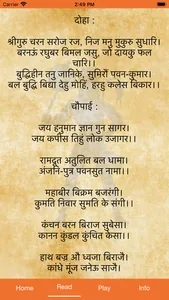 2:48 PM
दोहा :
श्रीगुरु चरन सरोज रज, निज मनु मुकुरु सुधारि।
बरनऊं रघुबर बिमल जसु, जो दायकु फल
चारि।।
बुद्धिहीन तनु जानिके, सुमिरों पवन-कुमार।
बल बुद्धि बिद्या देहु मोहिं, हरहु कलेस बिकार।।
चौपाई :
जय हनुमान ज्ञान गुन सागर।
जय कपीस तिहुं लोक उजागर।।
रामदूत अतुलित बल धामा।
अंजनि-पुत्र पवनसुत नामा।।
महाबीर बिक्रम बजरंगी।
कुमति निवार सुमति के संगी।।
कंचन बरन बिराज सुबेसा।
कानन कुंडल कुंचित केसा।।
हाथ बज्र औ ध्वजा बिराजै।
कांधे मूंज जनेऊ साजै।
Home Read Play Info